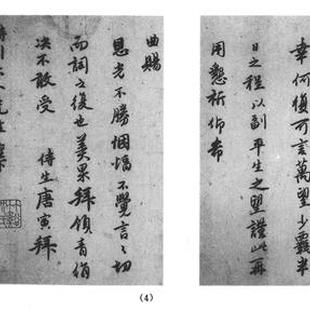 幸何復可言萬望少霽半
日之程以副平生之望謹此再
用懇祈仰希
曲賜
恩光不勝悃愊不覺言之切
而詞之復也美果拜領青絹
决不敢受 侍生唐寅拜
(4)